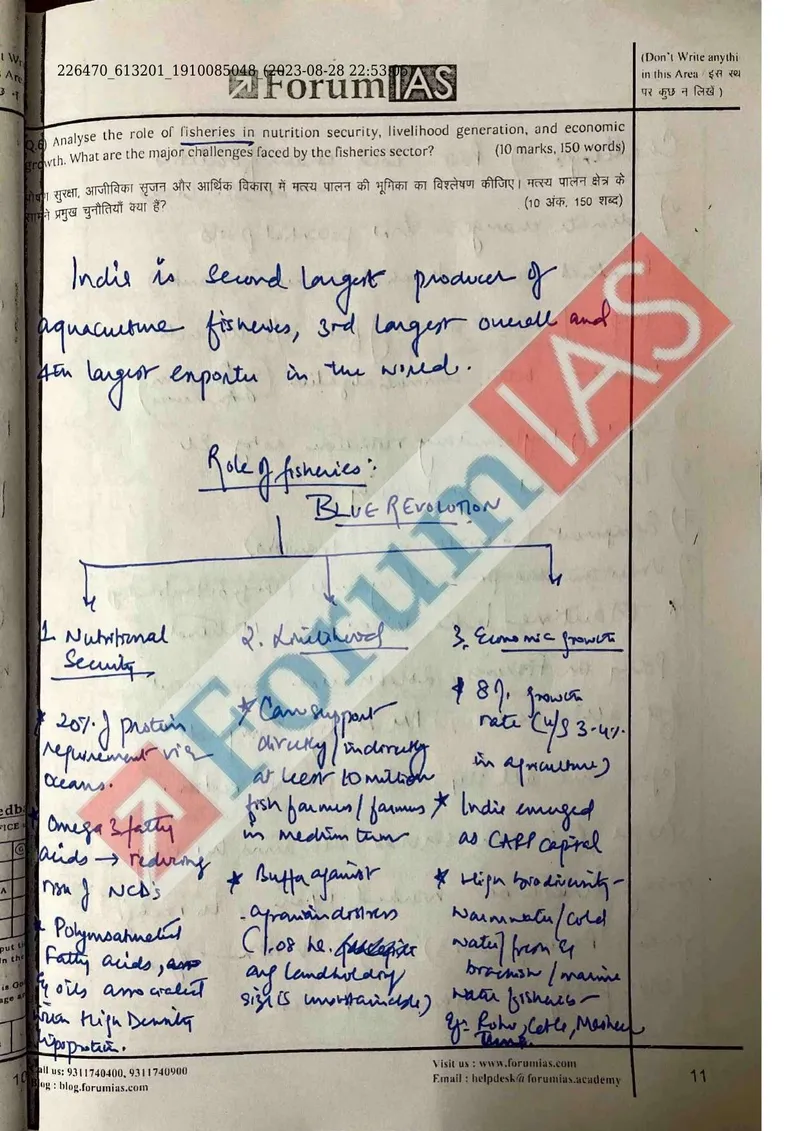 226470_613201_1910085048 (2023-08-28 22:53:05
Forum IAS
(Don't Write anythi
in this Area / इस
पर कुछ न लिखें)
Q.6) Analyse the role of fisheries in nutrition security, livelihood generation, and economic
growth. What are the major challenges faced by the fisheries sector? (10 marks, 150 words)
सुरक्षा, आजीविका सृजन और आर्थिक विकास में मत्स्य पालन की भूमिका का विश्लेषण कीजिए। मत्स्य पालन क्षेत्र के
सामने प्रमुख चुनौतियाँ क्या हैं? (10 अंक, 150 शब्द)
India is second largest producer of
aquaculture fisheries, 3rd largest overall and
4th largest exporter in the world.
Role of fisheries:
BLUE REVOLUTION
1. Nutritional
Security
* 20% of protein
requirement via
oceans.
* Omega 3 fatty
acids → reducing
risk of NCDs
* Polyunsaturated
fatty acids,
& oils associated
High Density
lipoprotein.
2. Livelihood
* Can support
directly/indirectly
at least 10 million
fish farmers/farmers
in medium term
* Buffer against
agrarian distress
(1.08 he.
avg landholding
size is unsustainable)
3. Economic growth
* 8% growth
rate (v/s 3-4%
in agriculture)
* India emerged
as CARP capital
* High biodiversity -
warm water/cold
water/fresh &
brackish/marine
water fisheries -
Eg- Rohu, Catla, Maheer
Forum IAS
Call us: 9311740400, 9311740900
Blog : blog.forumias.com
Visit us : www.forumias.com
Email : helpdesk@forumias.academy
11